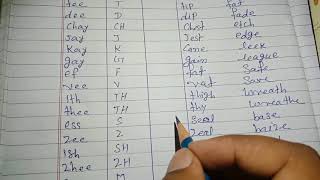 tee T tip fat
dee D dip fade
Chay CH Chest etch
Jay J Jest edge
Kay K Came leek
gay G gain league
ef F fat Safe
vee V vat Save
ith TH thigh Wreath
thee TH thy Wreathe
ess S Seal base
zee Z Zeal baize
ish SH
zhee ZH
M